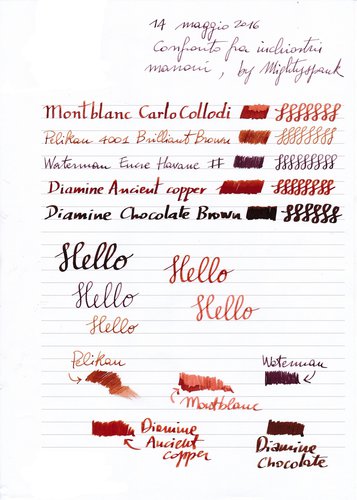 14 maggio 2016
Confronto fra inchiostri
marroni, by Mightyspank
Montblanc Carlo Collodi
Pelikan 4001 Brilliant Brown
Waterman Encre Havane #
Diamine Ancient copper
Diamine Chocolate Brown
Hello
Hello
Hello
Hello
Hello
Pelikan
Montblanc
Waterman
Diamine
Ancient
copper
Diamine
Chocolate